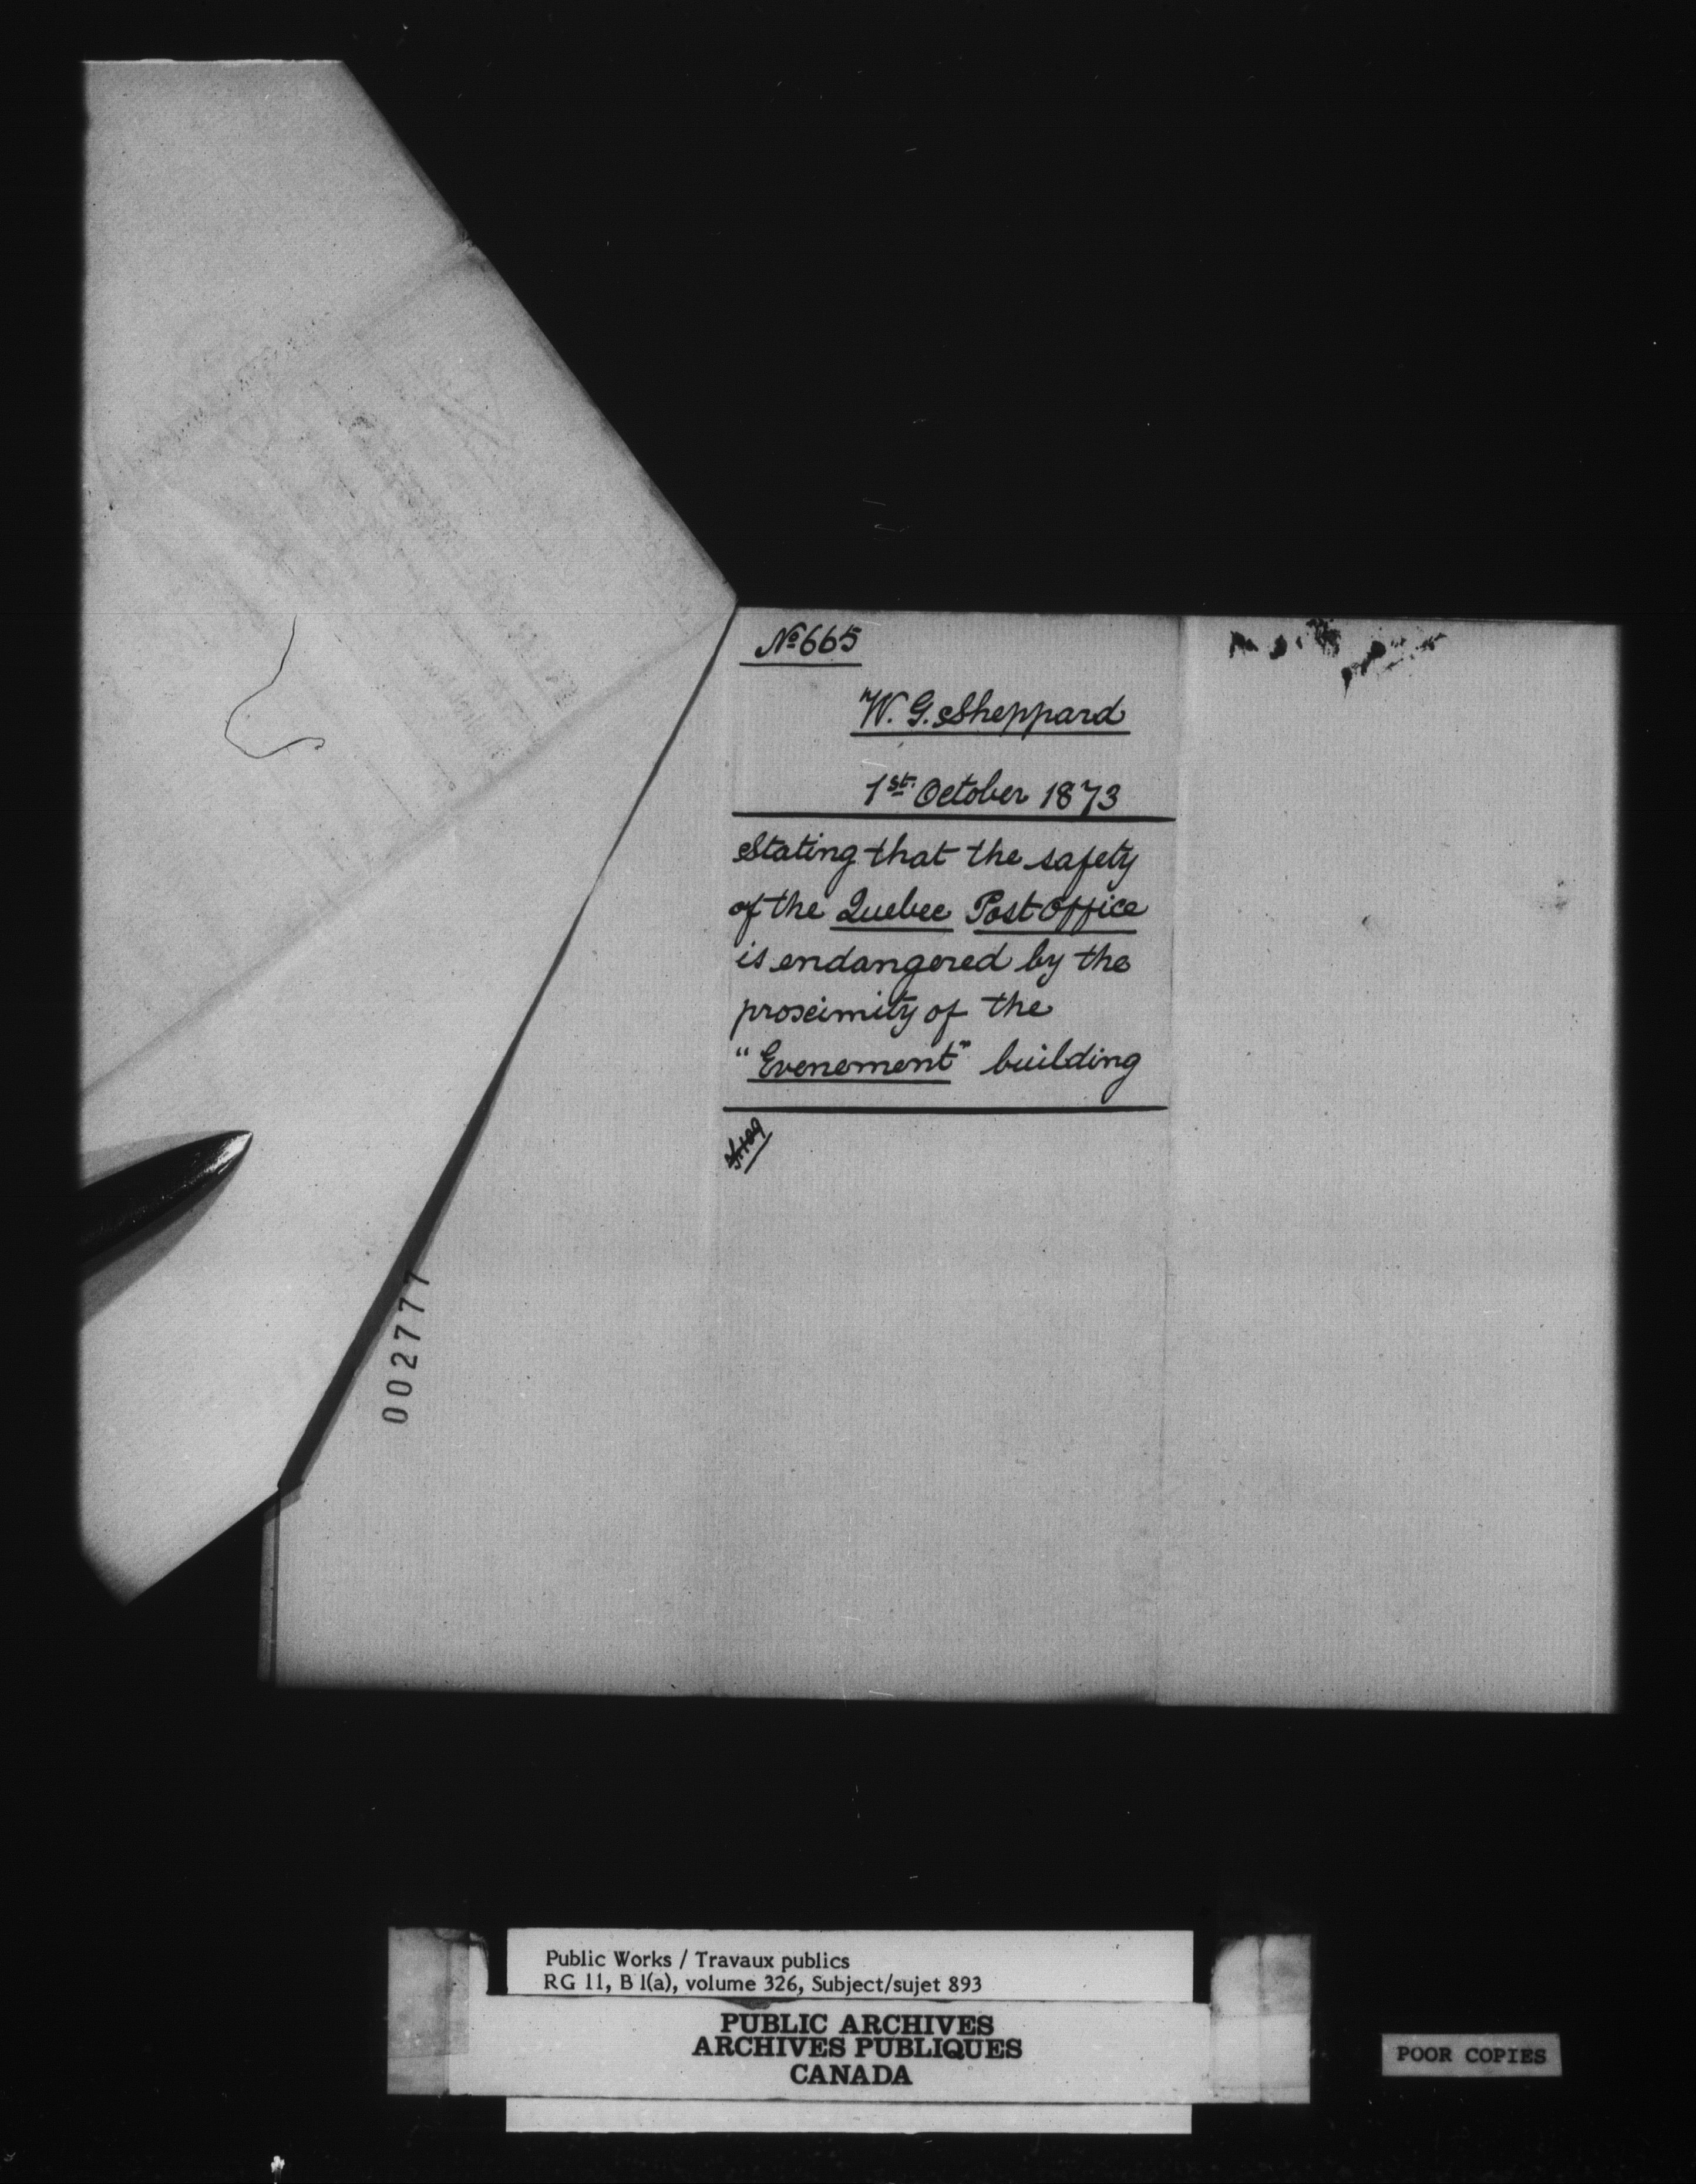 No 665
W. G. Sheppard
1st. October 1873
Stating that the safety
of the Quebec Post Office
is endangered by the
proximity of the
"Evenement" building
002777
Public Works / Travaux publics
RG 11, B 1(a), volume 326, Subject/sujet 893
PUBLIC ARCHIVES
ARCHIVES PUBLIQUES
CANADA
POOR COPIES